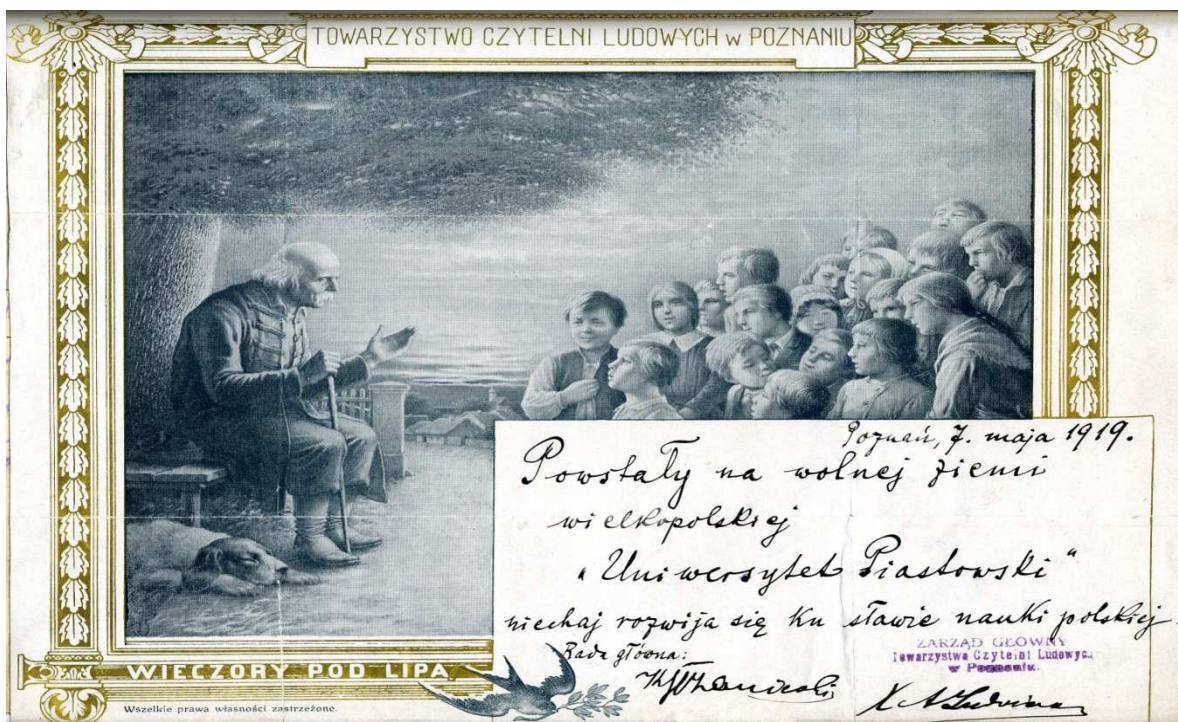 TOWARZYSTWO CZYTELNI LUDOWYCH w POZNANIU
Poznań, 7. maja 1919.
Powstały na wolnej ziemi
wielkopolskiej
"Uniwersytet Piastowski"
niechaj rozwija się ku sławie nauki polskiej.
Rada główna:
ZARZĄD GŁOWNY
Towarzystwa Czytelni Ludowych
w Poznaniu.
WIECZORY POD LIPĄ
Wszelkie prawa własności zastrzeżone.